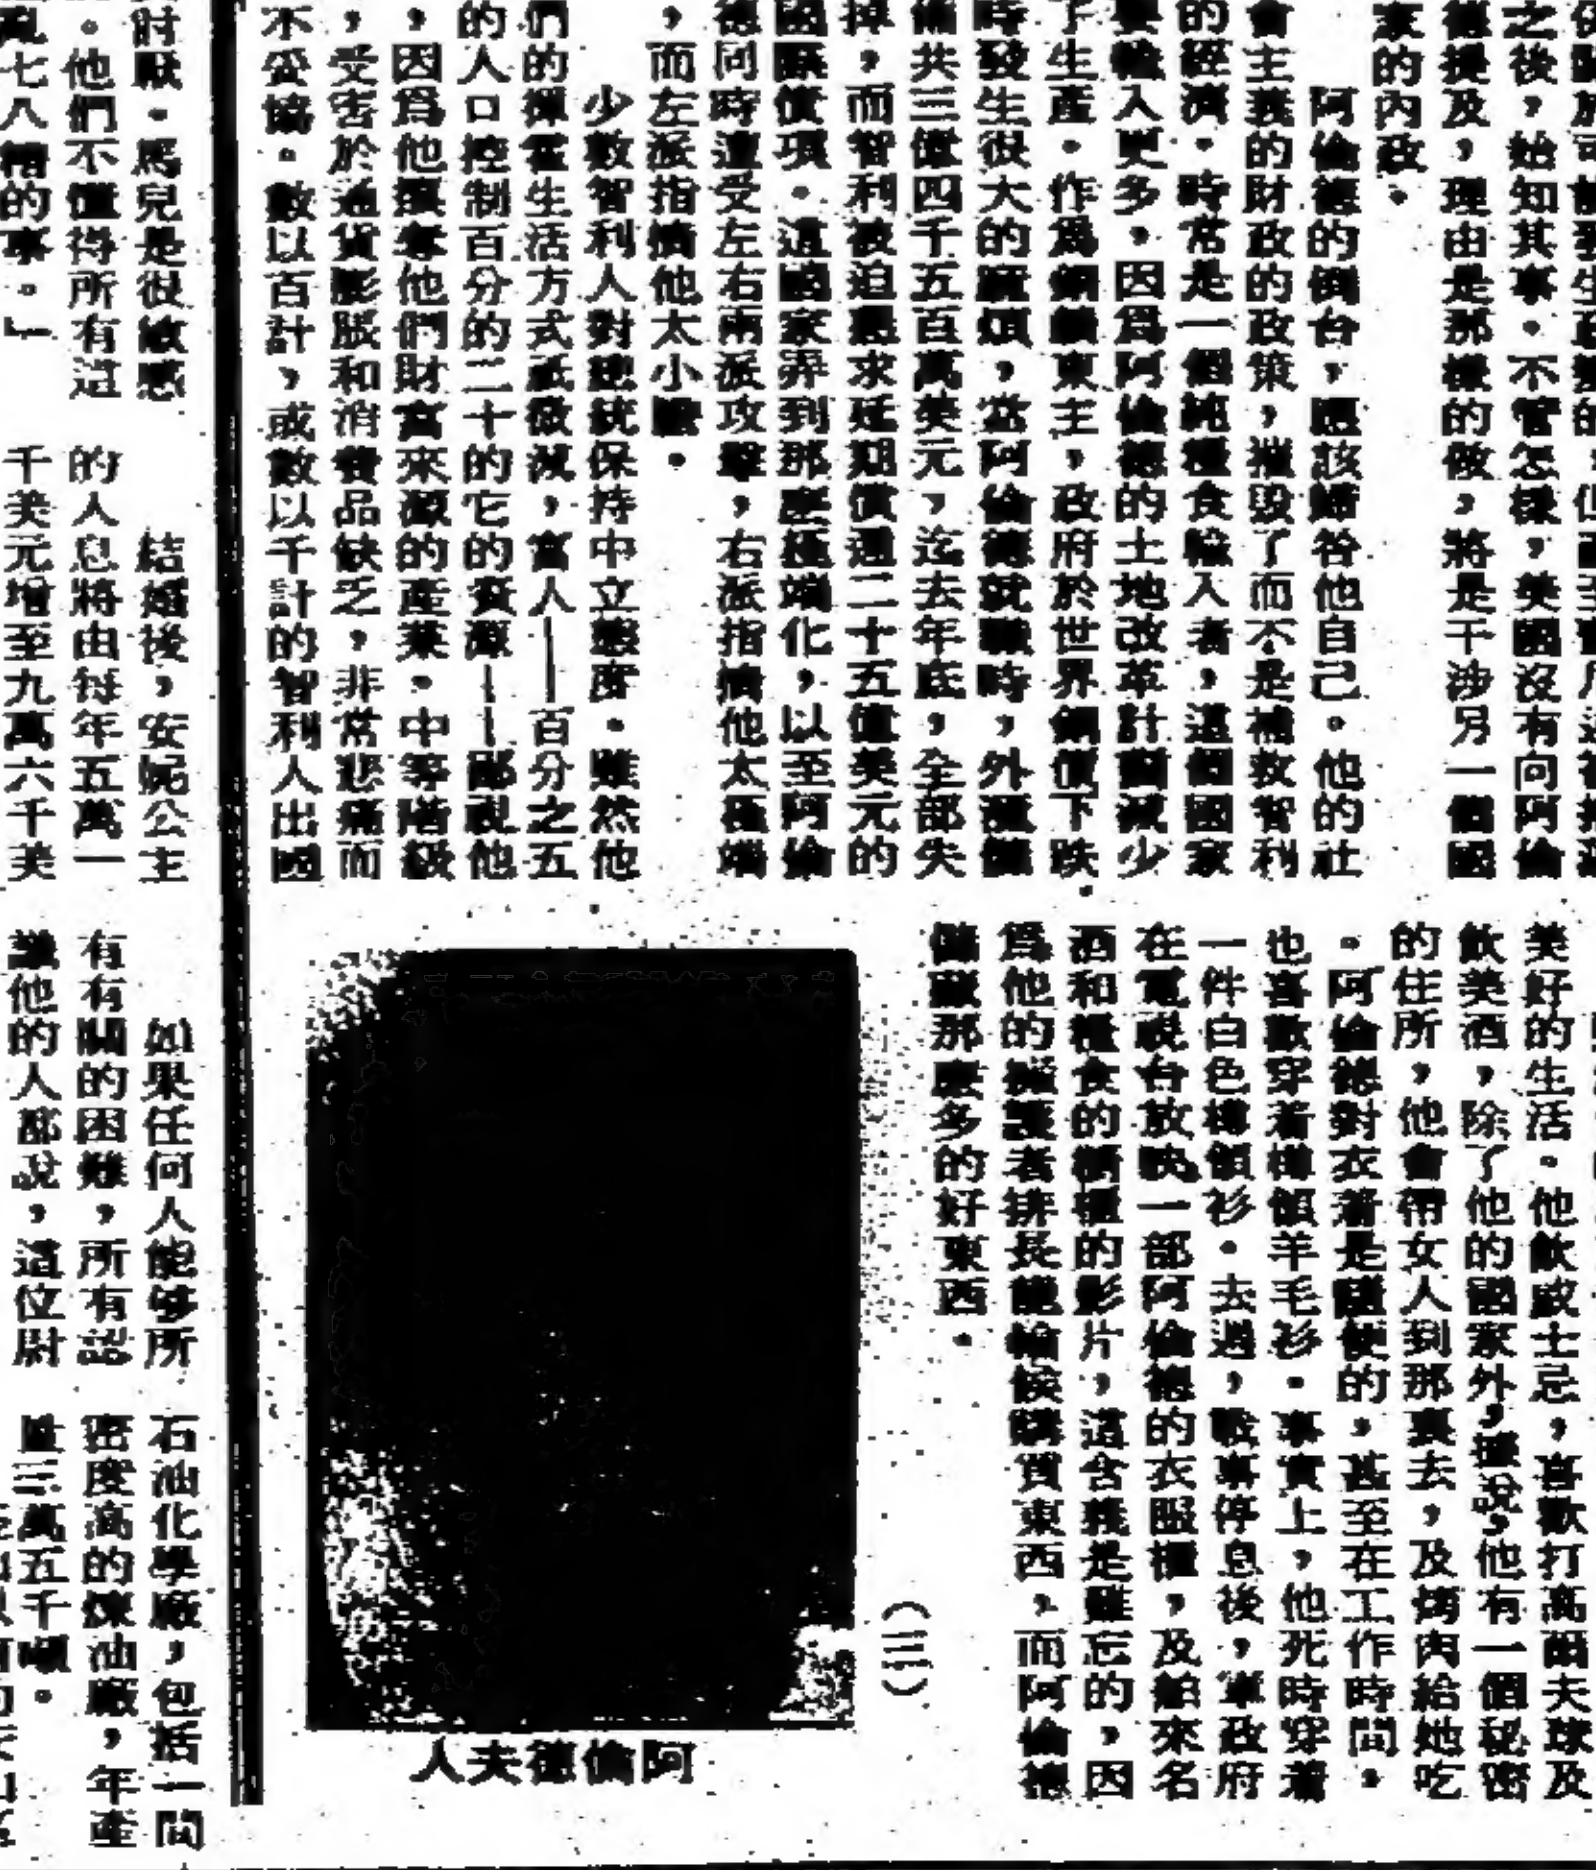 之後，始知其事。不管怎樣，美國沒有向阿倫
德提及，理由是那樣的做，將是干涉另一個國
家的內政。
阿倫德的倒台，應該歸咎他自己。他的社
會主義的財政的政策，摧毀了而不是補救智利
的經濟。時常是一個純糧食輸入者，這個國家
要輸入更多，因爲阿倫德的土地改革計劃減少
了生產。作爲銅鑛東主，政府於世界銅價下跌
時發生很大的麻煩，當阿倫德就職時，外滙儲
備共三億四千五百萬美元，迄去年底，全部失
掉，而智利被迫懇求延期償還二十五億美元的
國際債項。這國家弄到那麽極端化，以至阿倫
德同時遭受左右兩派攻擊，右派指摘他太極端
，而左派指摘他太小膽。
少數智利人對總統保持中立態度。雖然他
們的揮霍生活方式祇微減，富人——百分之五
的人口控制百分的二十的它的資源——鄙視他
，因爲他攫奪他們財富來源的產業。中等階級
，受害於通貨膨脹和消費品缺乏，非常悲痛而
不妥協。數以百計，或數以千計的智利人出國
美好的生活。他飲威士忌，喜歡打高爾夫球及
飲美酒，除了他的國家外，據說，他有一個秘密
的住所，他會帶女人到那裏去，及烤肉給她吃
。阿倫德對衣着是隨便的，甚至在工作時間。
也喜歡穿着樽領羊毛衫。事實上，他死時穿着
一件白色樽領衫。去週，戰事停息後，軍政府
在電視台放映一部阿倫德的衣服櫃，及舶來名
酒和糧食的櫥櫃的影片，這含義是難忘的，因
爲他的擁護者排長龍輪候購買東西，而阿倫德
儲藏那麽多的好東西。
（三）
阿倫德夫人
討厭。馬兒是很敏感
。他們不懂得所有這
亂七八糟的事。」
結婚後，安妮公主
的人息將由每年五萬一
千美元增至九萬六千美
如果任何人能够所
有有關的困難，所有認
識他的人都說，這位尉
石油化學廠，包括一間
密度高的煉油廠，年產
三萬五千噸。